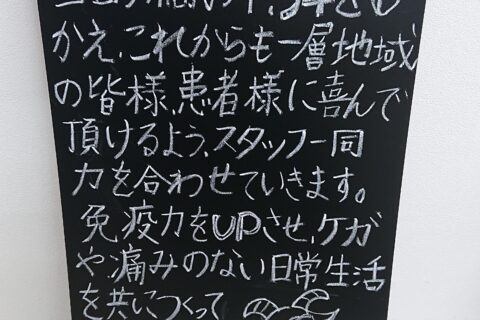 かえ、これからも一層地域
の皆様、患者様に喜んで
頂けるよう、スタッフ一同
力を合わせていきます。
免疫力をUPさせ、ケガ
や痛みのない日常生活
を共につくって